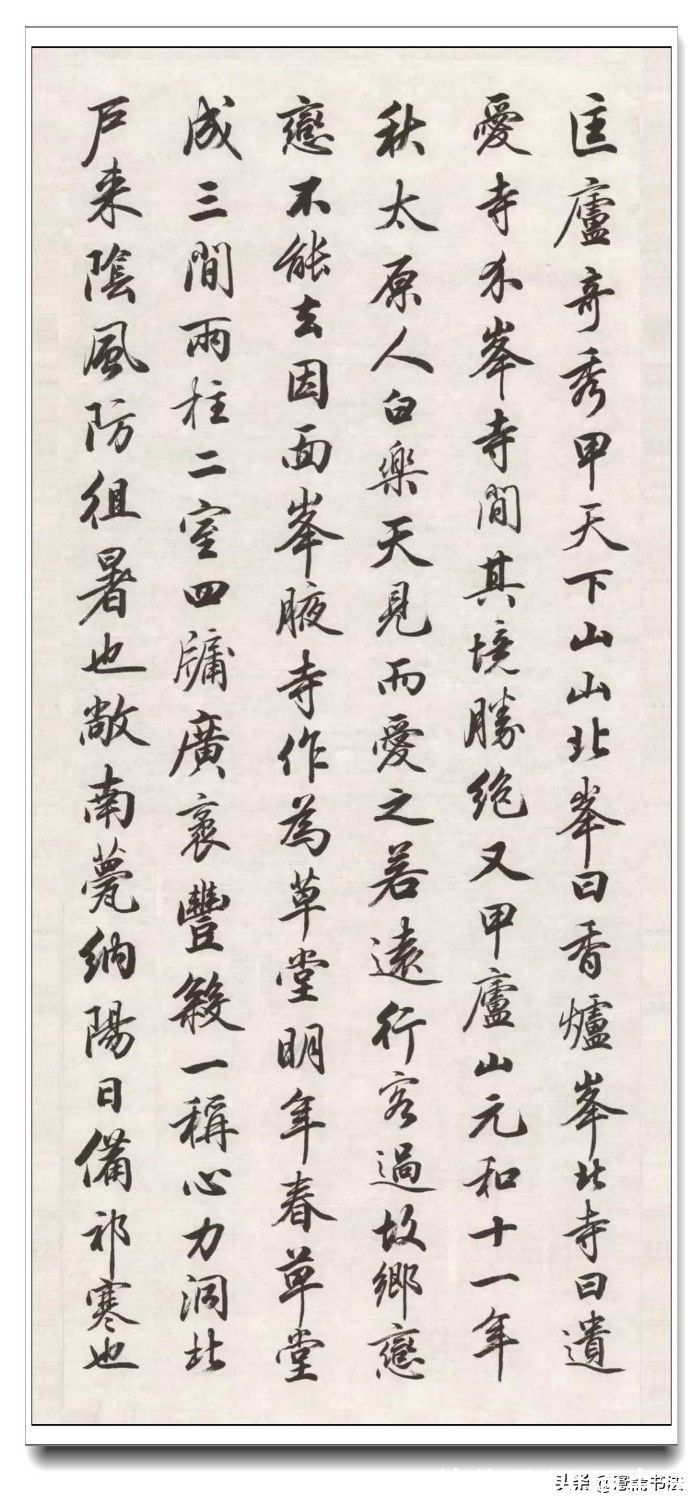 匡廬奇秀甲天下山山北峯曰香爐峯北寺曰遺
愛寺介峯寺間其境勝絶又甲廬山元和十一年
秋太原人白樂天見而愛之若遠行客過故鄉戀
戀不能去因面峯腋寺作為草堂明年春草堂
成三間兩柱二室四牖廣袤豐殺一稱心力洞北
戶来陰風防徂暑也敞南甍納陽日備祁寒也
头条 @书法